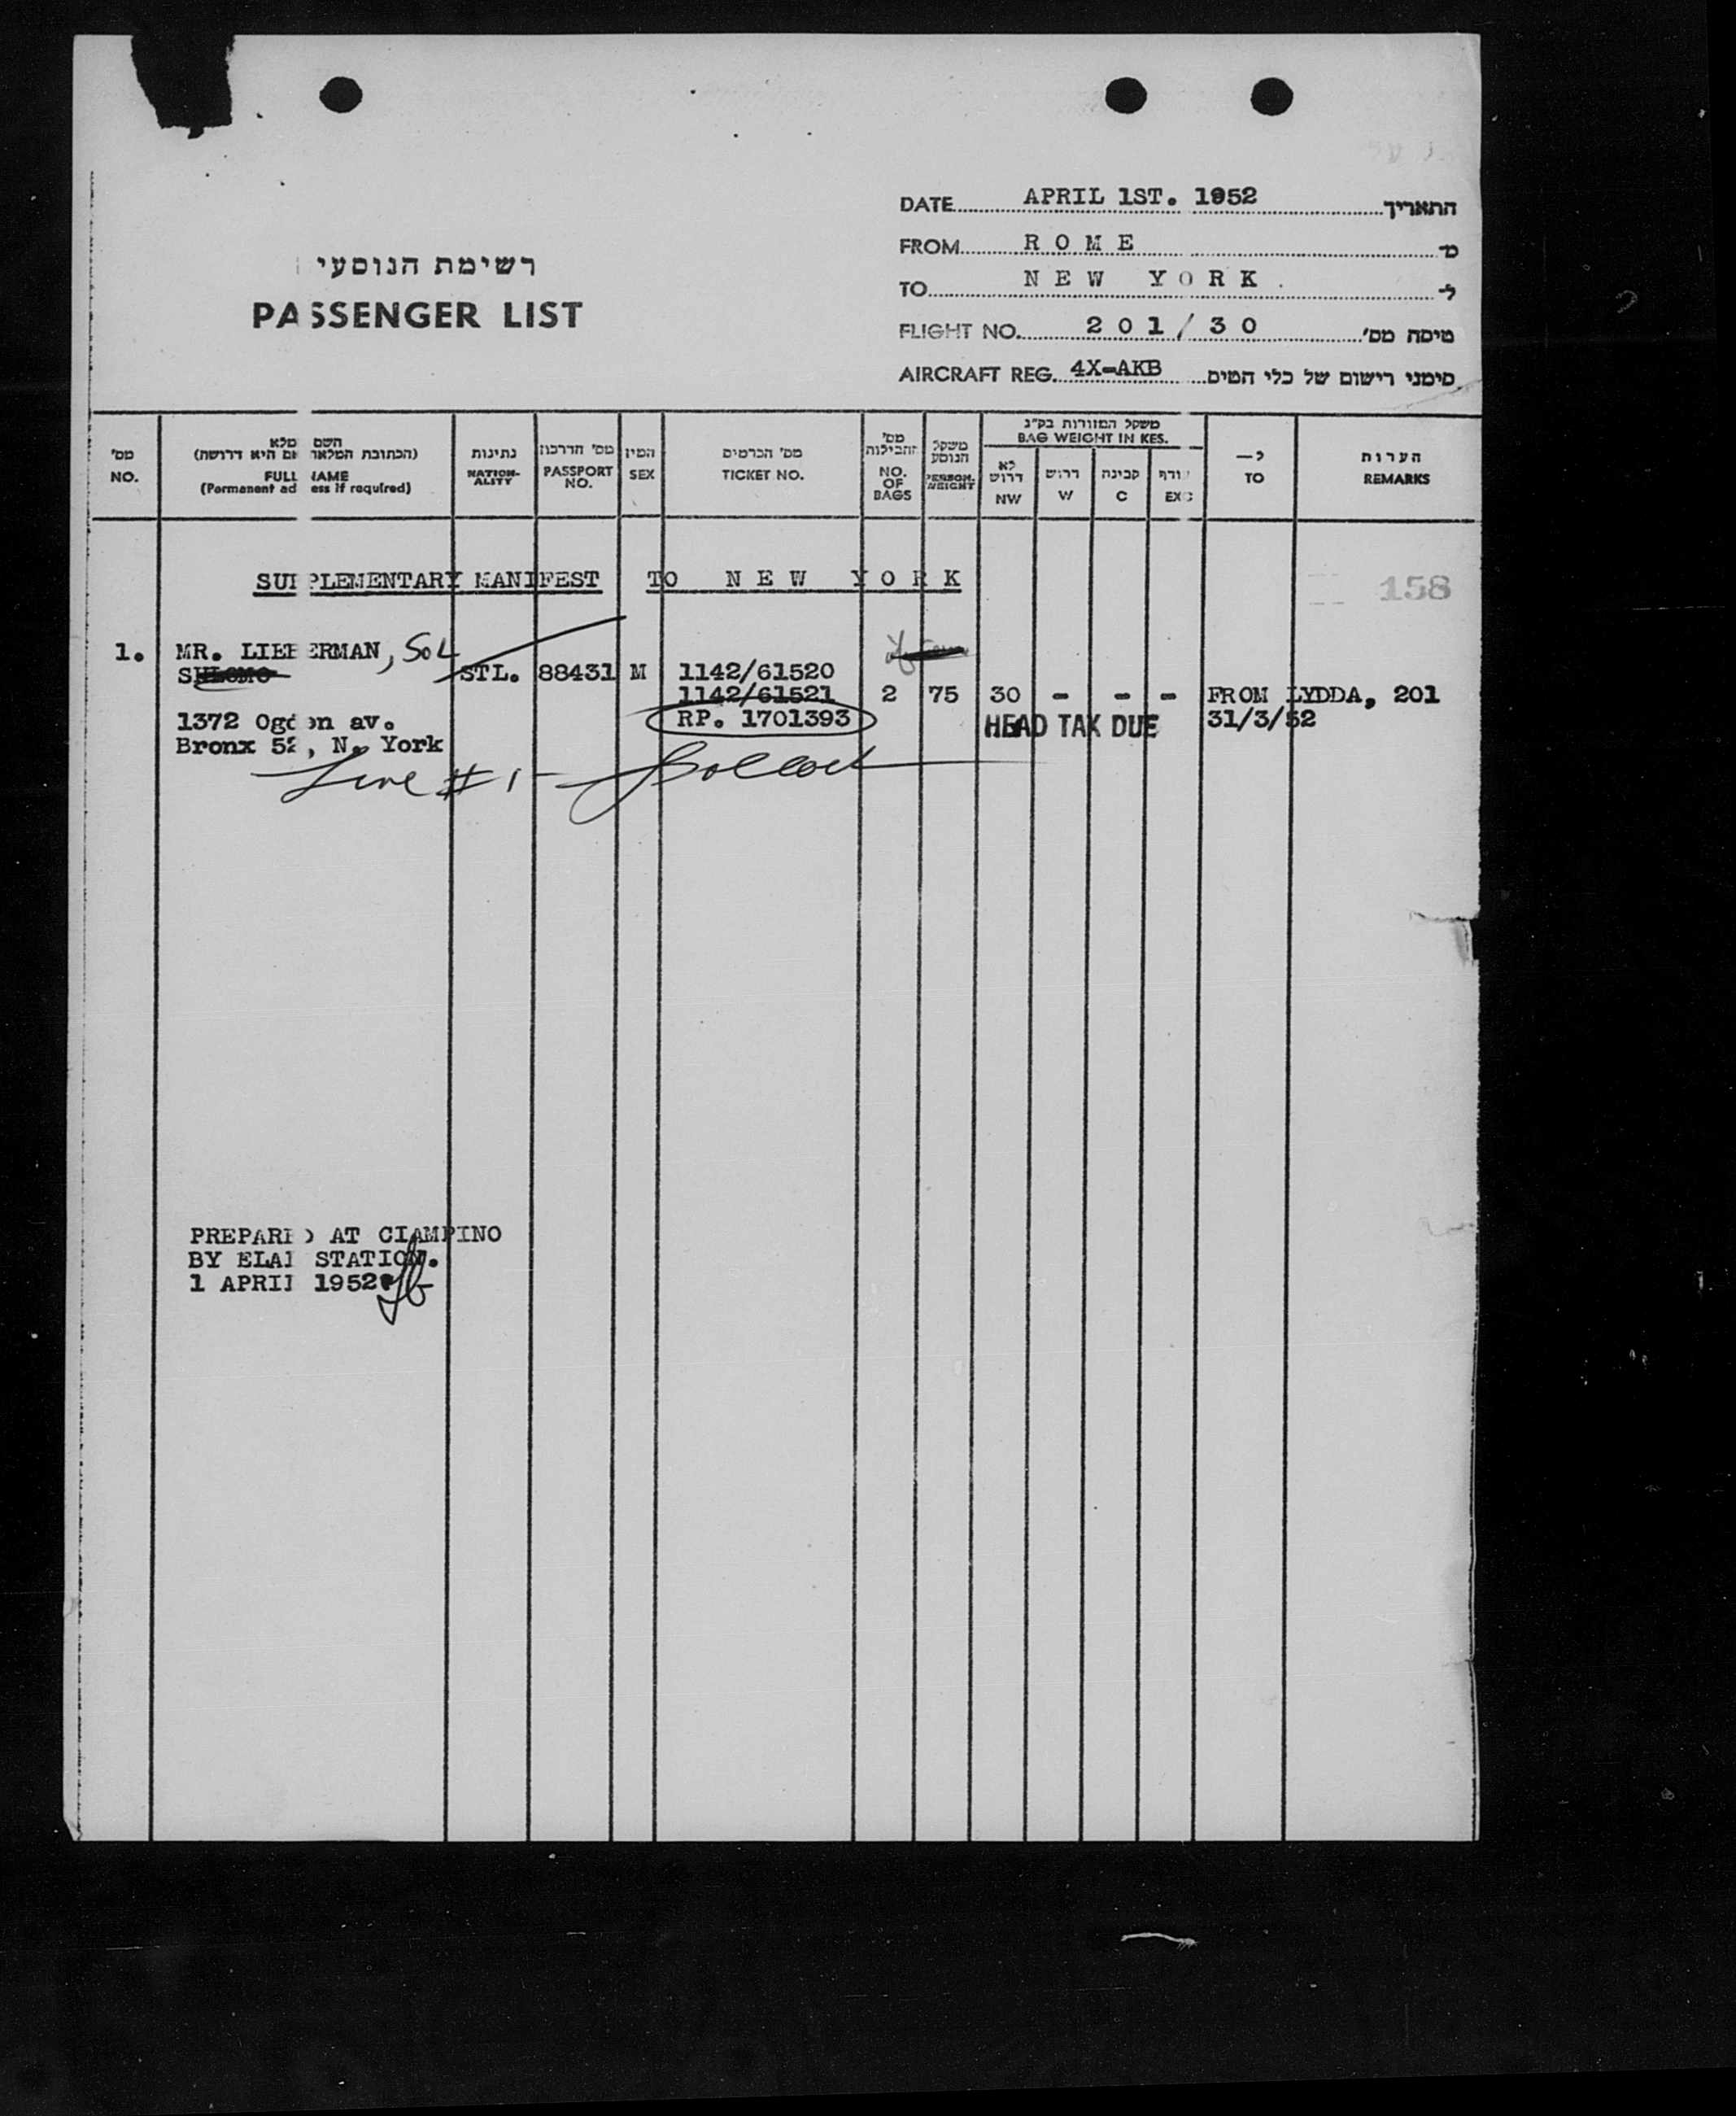 DATE APRIL 1ST. 1952 התאריך
FROM ROME מ-
TO NEW YORK. ל-
FLIGHT NO. 201/30 טיסה מס'
AIRCRAFT REG. 4X-AKB סימני רישום של כלי הטיס
רשימת הנוסעי
PASSENGER LIST
מס' NO.
השם מלא (הכתובת המלאה אם היא דרושה)
FULL NAME
(Permanent ad ess if required)
נתינות NATION-ALITY
מס' הדרכון PASSPORT NO.
המין SEX
מס' הכרטיס TICKET NO.
מס' החבילות NO. OF BAGS
משקל הנוסע PERSON. WEIGHT
משקל המזוודות בק"ג
BAG WEIGHT IN KES.
לא דרוש NW
דרוש W
קבינה C
עודף EXC
ל— TO
הערות REMARKS
SUPPLEMENTARY MANIFEST TO NEW YORK
158
1. MR. LIEBERMAN, SOL
SHLOMO STL. 88431 M 1142/61520
1142/61521 2 75 30 - - - FROM LYDDA, 201
1372 Ogden av. RP. 1701393 HEAD TAX DUE 31/3/52
Bronx 52, N. York
Line #1 -
PREPARED AT CIAMPINO
BY ELAL STATION.
1 APRIL 1952